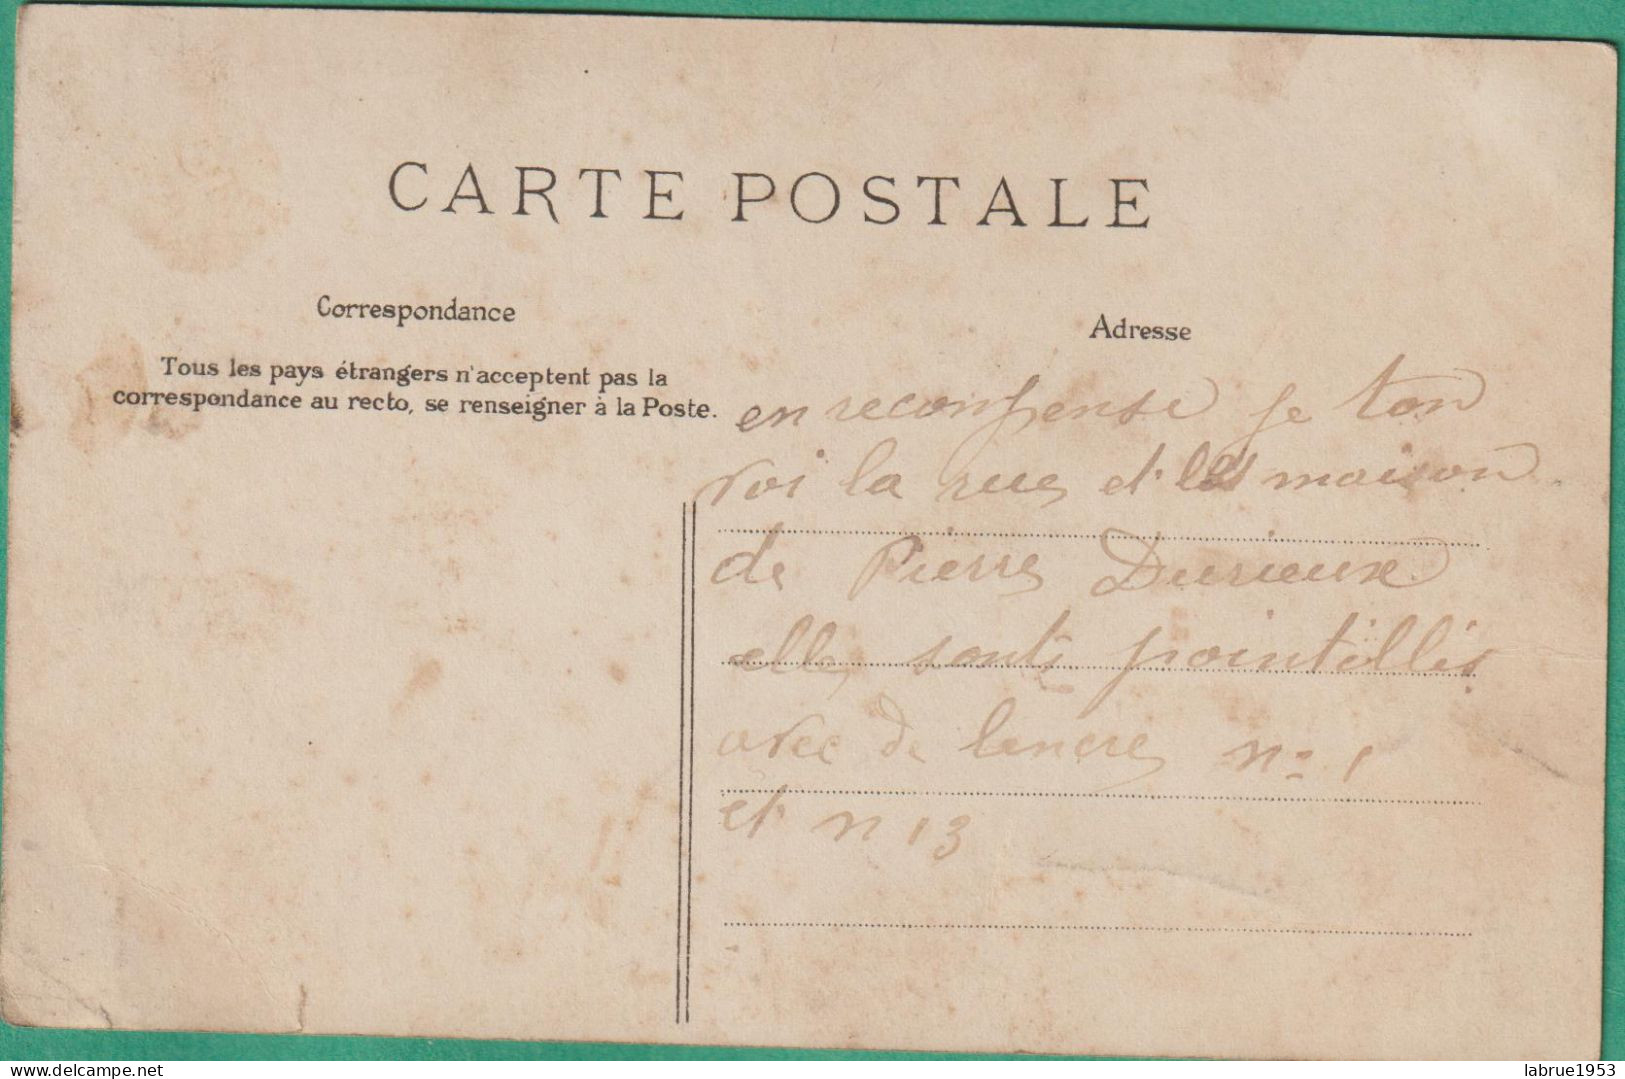 CARTE POSTALE
Correspondance
Tous les pays étrangers n'acceptent pas la
correspondance au recto, se renseigner à la Poste.
Adresse
en recompense je ton
voi la rue et les maison
de Pierre Durieux
elle sont pointillis
avec de lencre n= 1
et n 13
delcampe.net
labrue1953